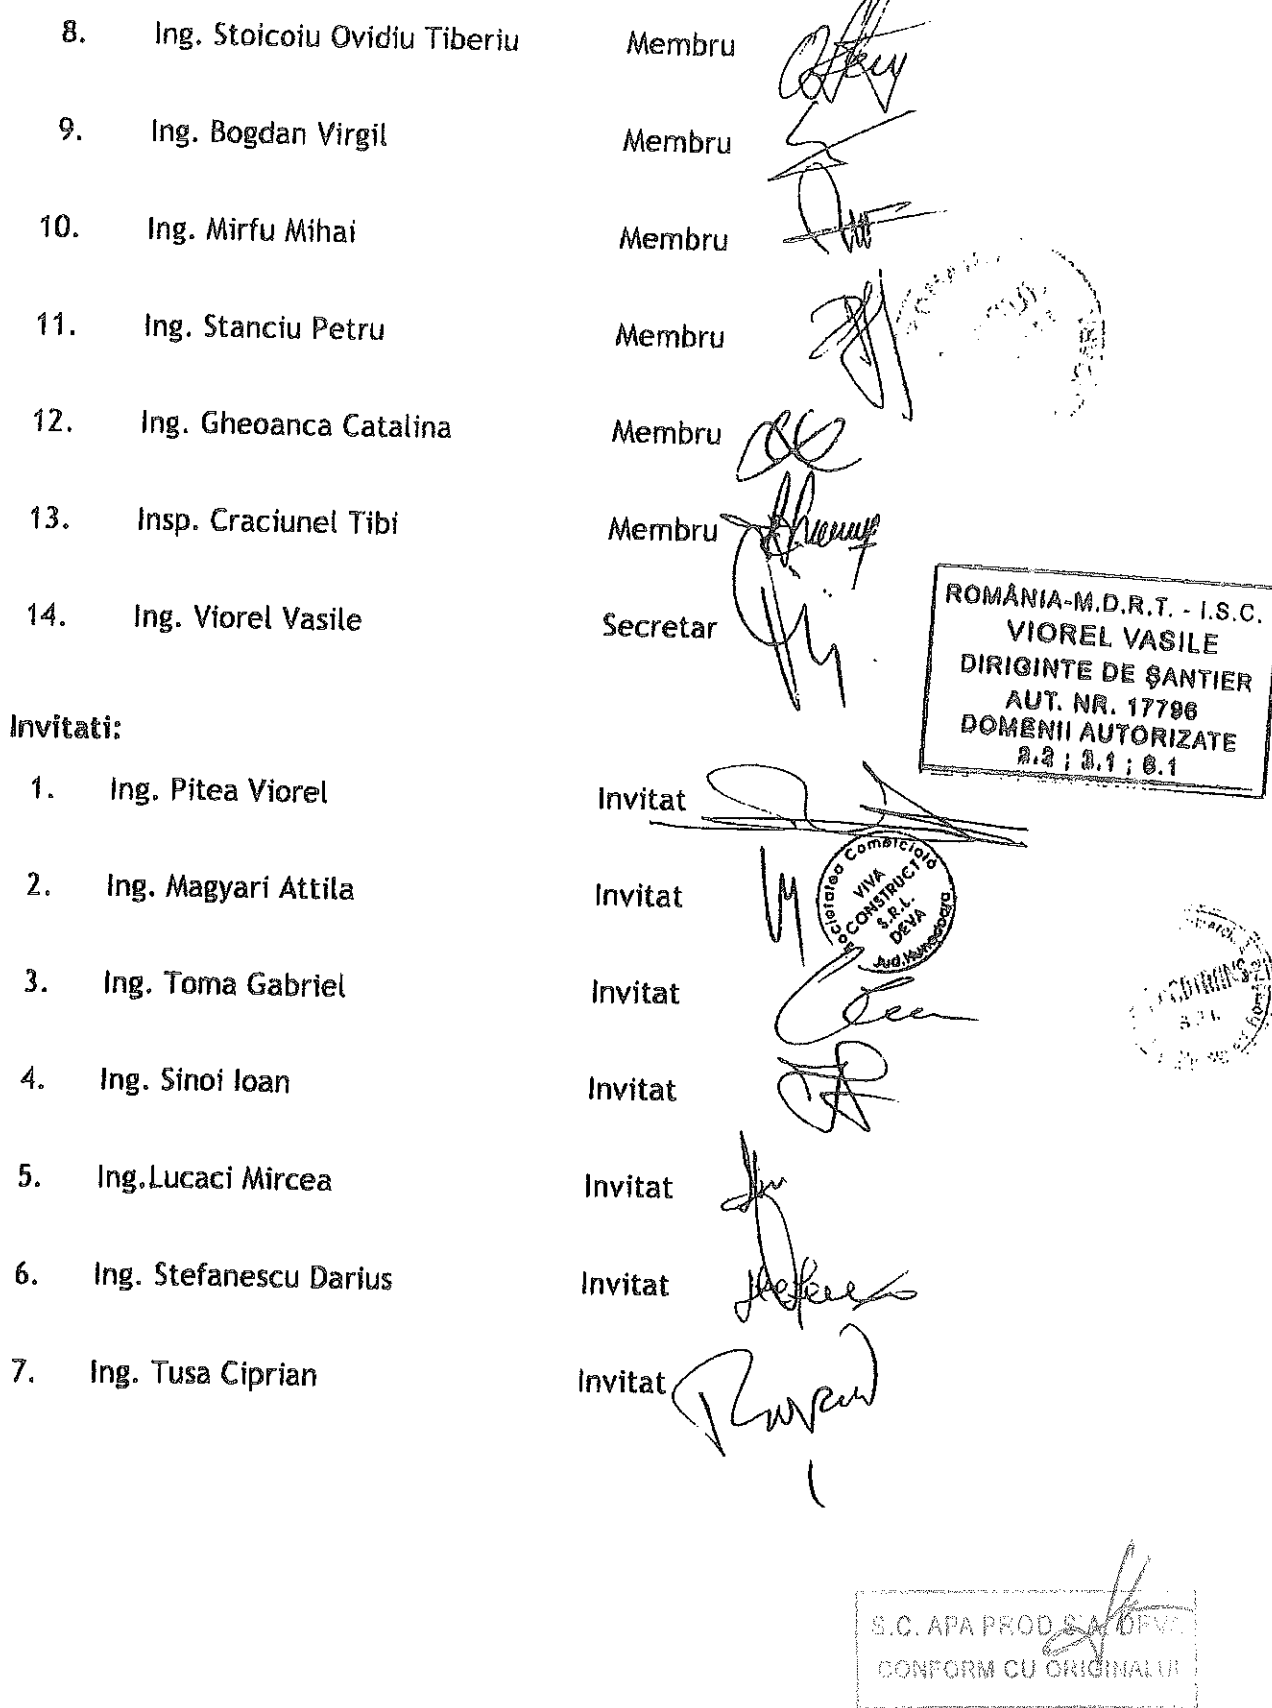 8. Ing. Stoicoiu Ovidiu Tiberiu Membru
9. Ing. Bogdan Virgil Membru
10. Ing. Mirfu Mihai Membru
11. Ing. Stanciu Petru Membru
12. Ing. Gheoanca Catalina Membru
13. Insp. Craciunel Tibi Membru
14. Ing. Viorel Vasile Secretar
ROMÂNIA-M.D.R.T. - I.S.C.
VIOREL VASILE
DIRIGINTE DE ŞANTIER
AUT. NR. 17796
DOMENII AUTORIZATE
2.2 ; 3.1 ; 6.1
Invitati:
1. Ing. Pitea Viorel Invitat
2. Ing. Magyari Attila Invitat
Societatea Comercială
VIVA
CONSTRUCT
S.R.L.
DEVA
Jud. Hunedoara
3. Ing. Toma Gabriel Invitat
4. Ing. Sinoi Ioan Invitat
5. Ing.Lucaci Mircea Invitat
6. Ing. Stefanescu Darius Invitat
7. Ing. Tusa Ciprian Invitat
S.C. APA PROD S.A. DEVA
CONFORM CU ORIGINALUL